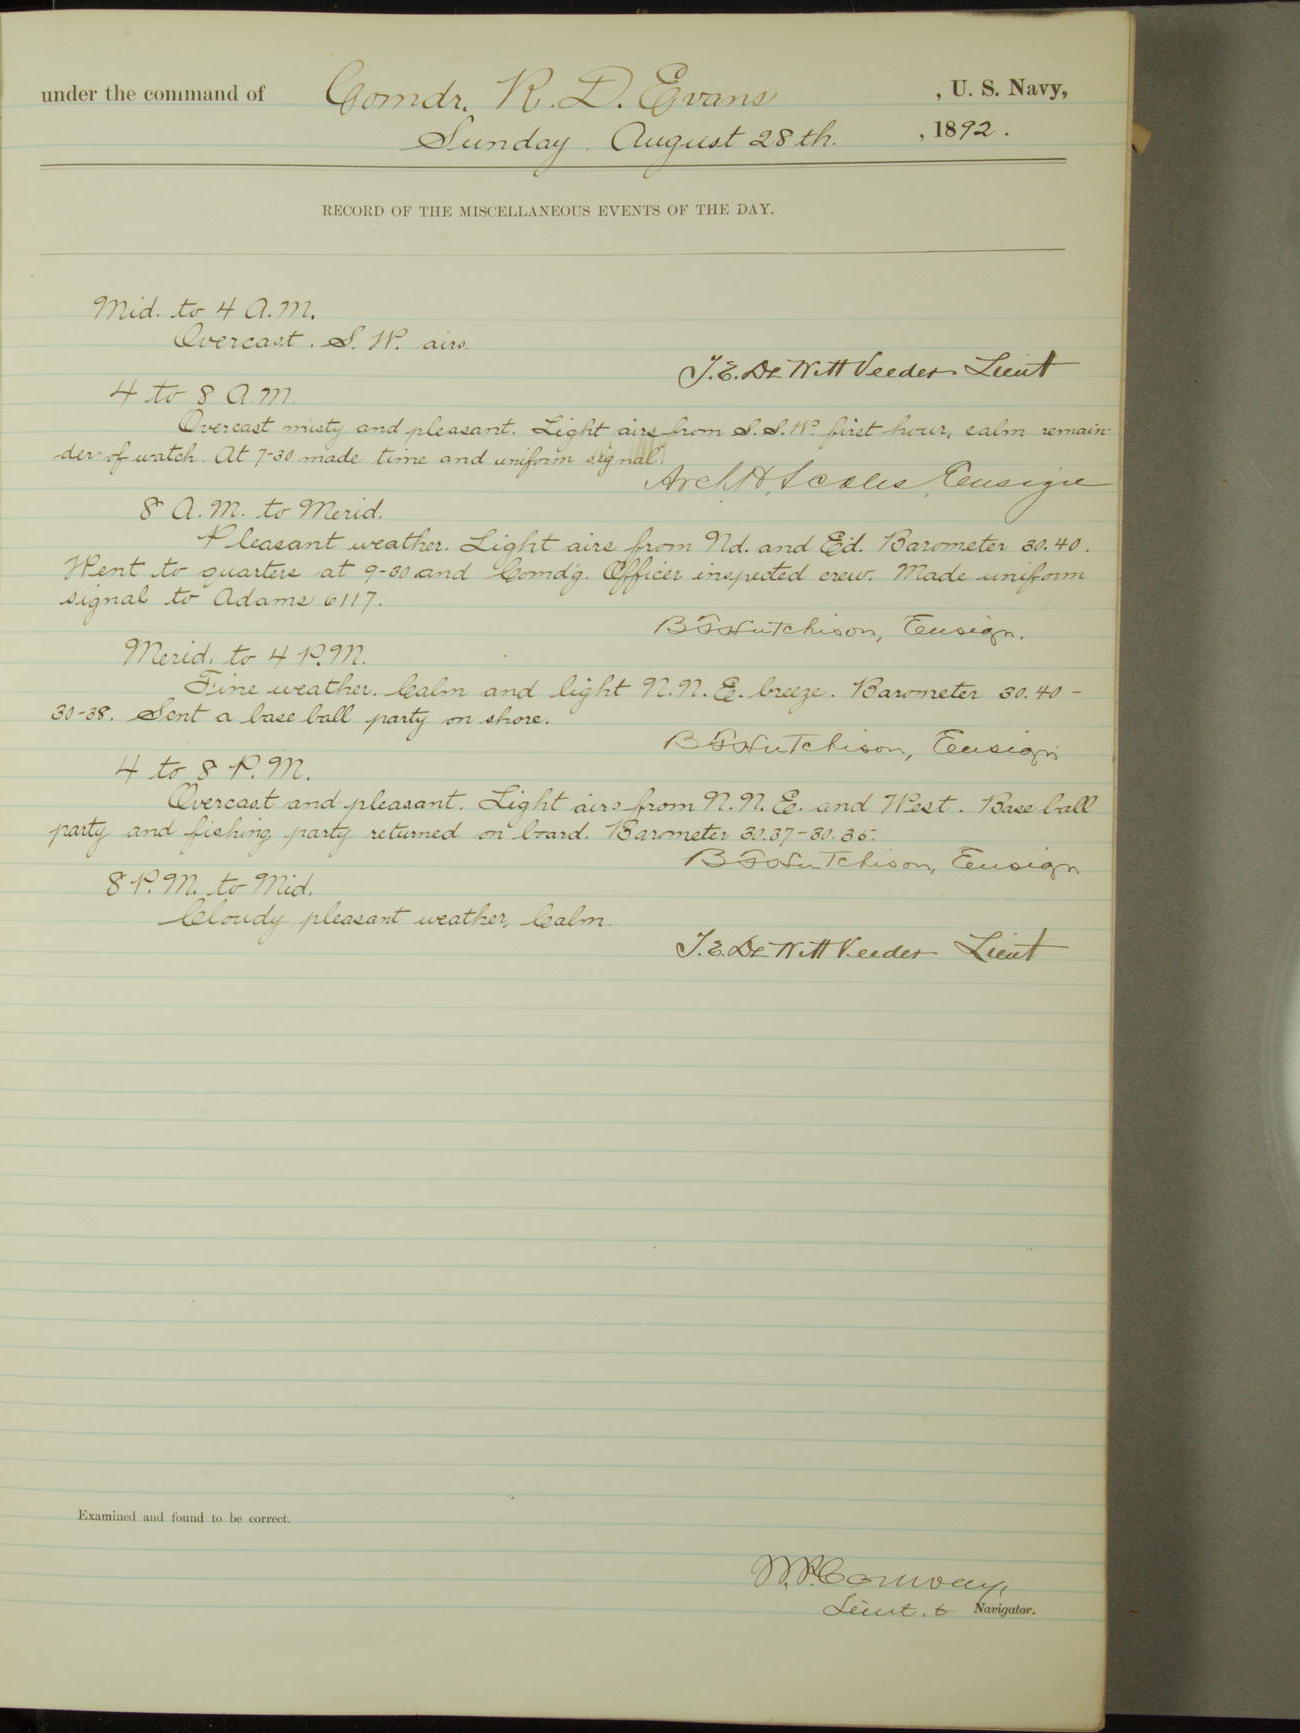 under the command of Comdr. R. D. Evans , U. S. Navy,
Sunday. August 28th. , 1892.
RECORD OF THE MISCELLANEOUS EVENTS OF THE DAY.
Mid. to 4 A.M.
Overcast. S. W. airs.
T. E. De Witt Veeder Lieut
4 to 8 A.M.
Overcast misty and pleasant. Light airs from S. S. W. first hour, calm remain-
der of watch. At 7-30 made time and uniform signal.
Arch H. Scales, Ensign
8 A.M. to Merid.
Pleasant weather. Light airs from Nd. and Ed. Barometer 30.40.
Went to quarters at 9-30 and Comd'g. Officer inspected crew. Made uniform
signal to Adams 6117.
B F Hutchison, Ensign.
Merid. to 4 P.M.
Fine weather. Calm and light N. N. E. breeze. Barometer 30.40 -
30-38. Sent a base ball party on shore.
B F Hutchison, Ensign
4 to 8 P.M.
Overcast and pleasant. Light airs from N. N. E. and West. Base ball
party and fishing party returned on board. Barometer 30.37-30.36.
B F Hutchison, Ensign
8 P.M. to Mid.
Cloudy, pleasant weather, Calm.
T. E. De Witt Veeder Lieut
Examined and found to be correct.
W. P. Conway,
Lieut. & Navigator.